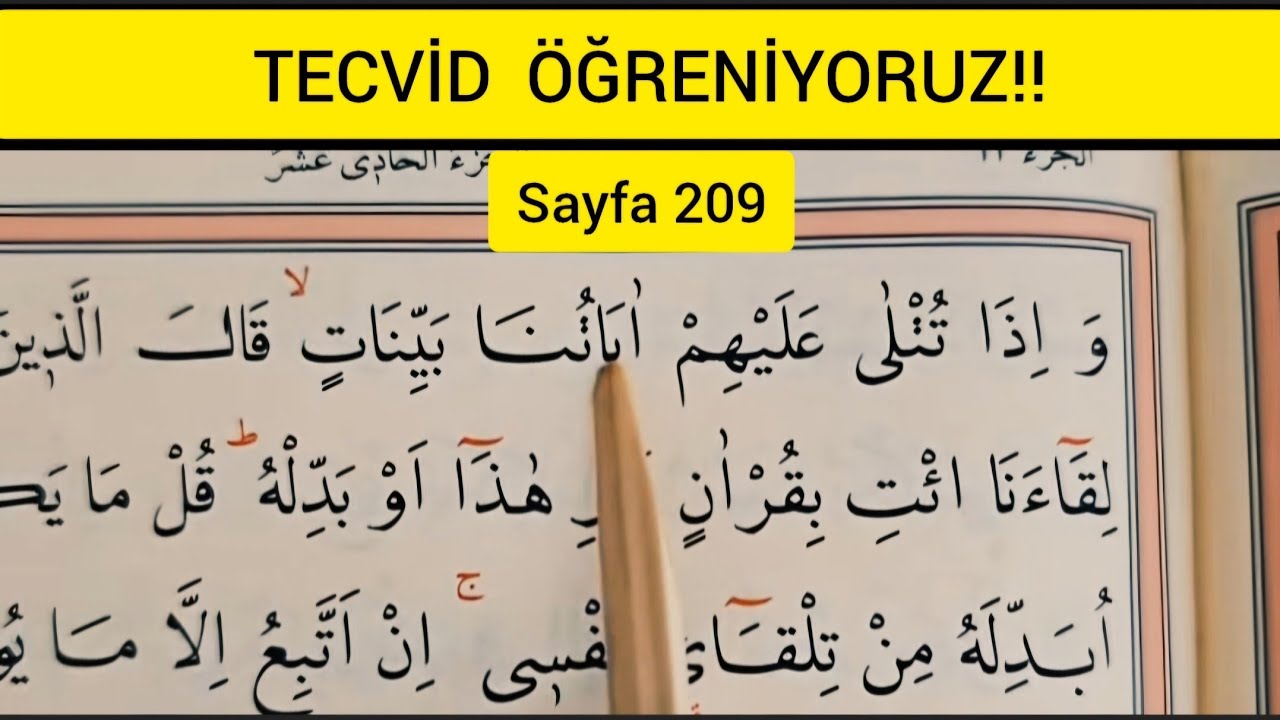 TECVİD ÖĞRENİYORUZ!!
Sayfa 209
وَ اِذَا تُتْلٰى عَلَيْهِمْ اٰيَاتُنَا بَيِّنَاتٍ ۙ قَالَ الَّذ۪ينَ
لِقَٓاءَنَا ائْتِ بِقُرْاٰنٍ هٰذَٓا اَوْ بَدِّلْهُ ۜ قُلْ مَا
اُبَدِّلَهُ مِنْ تِلْقَٓائِ نَفْس۪ى ۚ اِنْ اَتَّبِعُ اِلَّا مَا